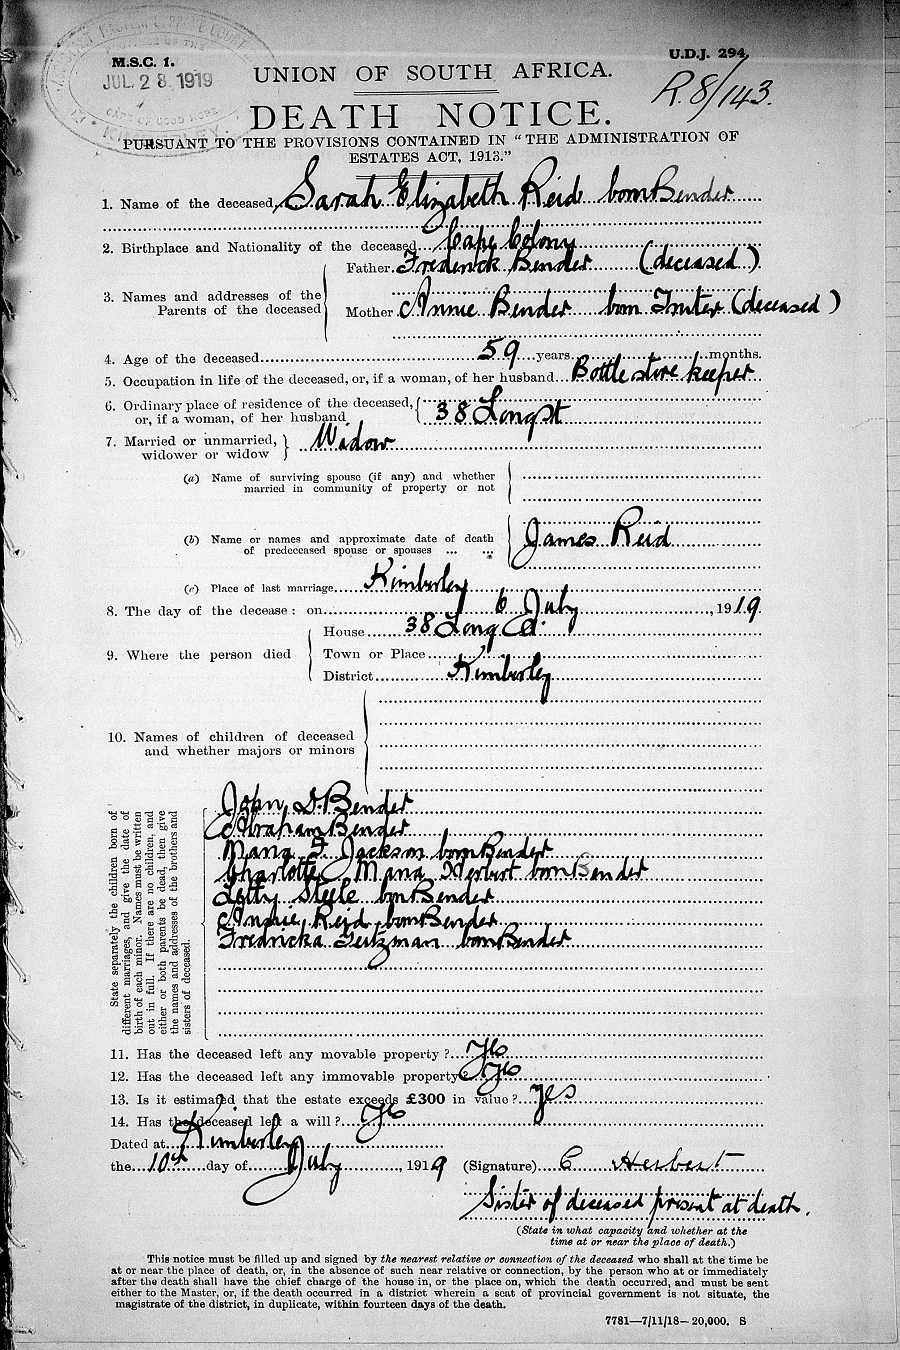 M.S.C. 1.
U.D.J. 294.
JUL 28 1919
KIMBERLEY
R.8/143.
UNION OF SOUTH AFRICA.
DEATH NOTICE.
PURSUANT TO THE PROVISIONS CONTAINED IN "THE ADMINISTRATION OF
ESTATES ACT, 1913."
1. Name of the deceased Sarah Elizabeth Reid born Bender
2. Birthplace and Nationality of the deceased Cape Colony
3. Names and addresses of the
Parents of the deceased
Father Frederick Bender (deceased)
Mother Annie Bender born (deceased)
4. Age of the deceased 59 years months.
5. Occupation in life of the deceased, or, if a woman, of her husband Bottle store keeper
6. Ordinary place of residence of the deceased,
or, if a woman, of her husband
38 Long st
7. Married or unmarried,
widower or widow
Widow
(a) Name of surviving spouse (if any) and whether
married in community of property or not
(b) Name or names and approximate date of death
of predeceased spouse or spouses ... ...
James Reid
(c) Place of last marriage Kimberley
8. The day of the decease: on 6 July, 1919
9. Where the person died
House 38 Long
Town or Place
District Kimberley
10. Names of children of deceased
and whether majors or minors
State separately the children born of
different marriages, and give the date of
birth of each minor. Names must be written
out in full. If there are no children, and
either or both parents be dead, then give
the names and addresses of the brothers and
sisters of deceased.
John D. Bender
Abraham Bender
Maria F. Jackson born Bender
Charlotte Maria Herbert born Bender
Letty Steele born Bender
Annie Reid born Bender
Fredricka born Bender
11. Has the deceased left any movable property? Yes
12. Has the deceased left any immovable property? Yes
13. Is it estimated that the estate exceeds £300 in value? Yes
14. Has the deceased left a will? Yes
Dated at Kimberley
the 10th day of July, 1919 (Signature) C Herbert
Sister of deceased present at death.
(State in what capacity and whether at the
time at or near the place of death.)
This notice must be filled up and signed by the nearest relative or connection of the deceased who shall at the time be
at or near the place of death, or, in the absence of such near relative or connection, by the person who at or immediately
after the death shall have the chief charge of the house in, or the place on, which the death occurred, and must be sent
either to the Master, or, if the death occurred in a district wherein a seat of provincial government is not situate, the
magistrate of the district, in duplicate, within fourteen days of the death.
7781—7/11/18—20,000. S